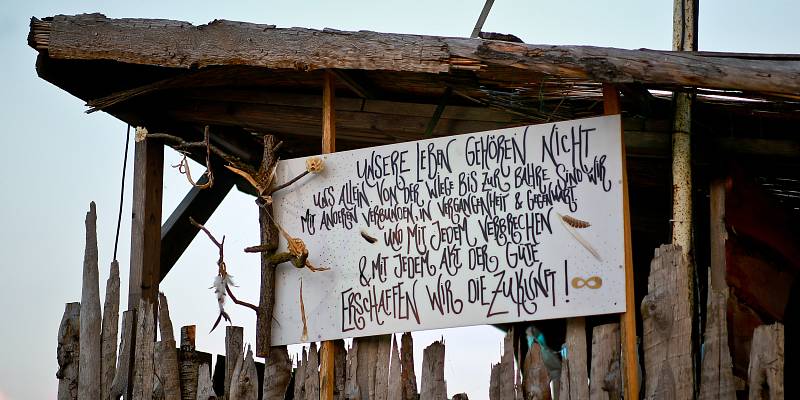 UNSERE LEBEN GEHÖREN NICHT
UNS ALLEIN VON DER WIEGE BIS ZUR BAHRE SIND WIR
MIT ANDEREN VERBUNDEN, IN VERGANGENHEIT & GEGENWART
UND MIT JEDEM VERBRECHEN
& MIT JEDEM AKT DER GÜTE
ERSCHAFFEN WIR DIE ZUKUNFT!